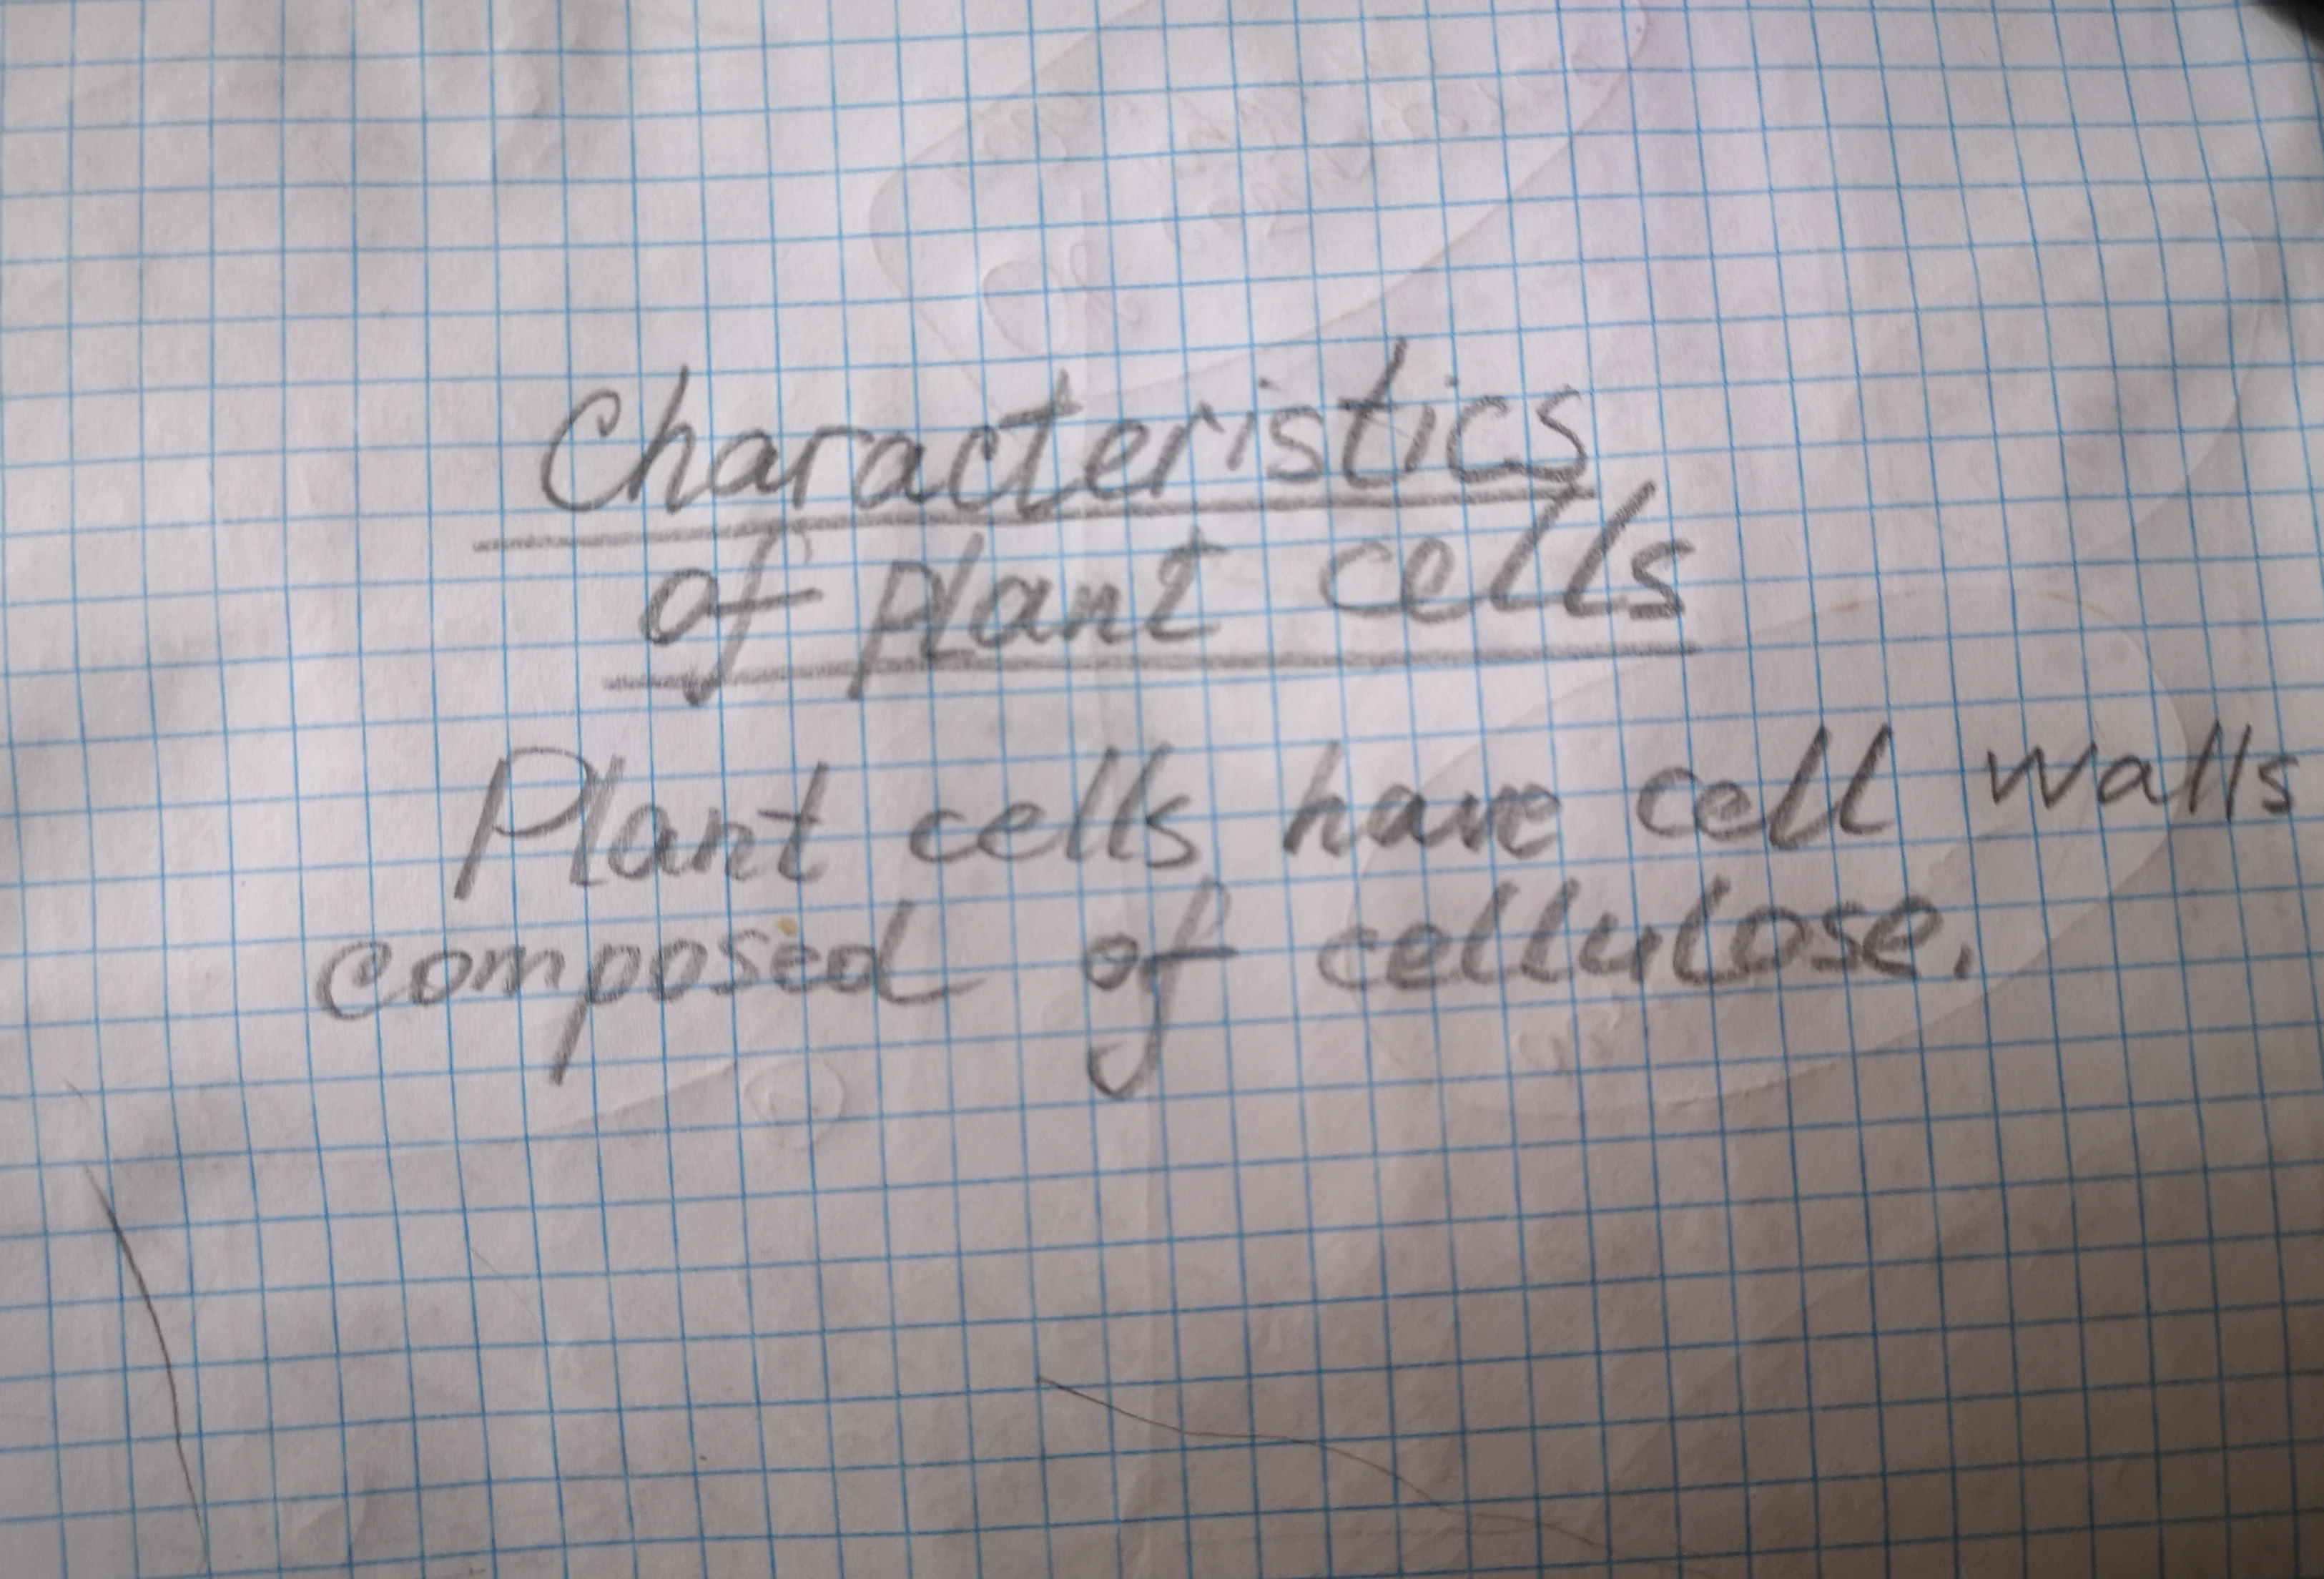 Characteristics
of plant cells
Plant cells have cell walls
composed of cellulose.